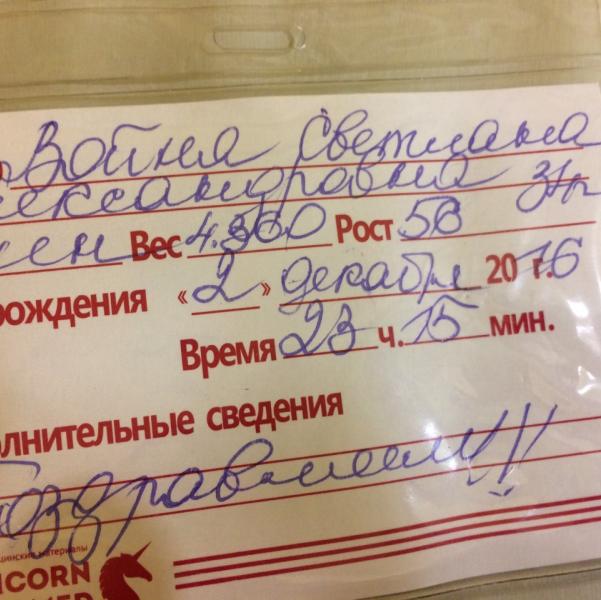 Война Светлана
лександровна
жен Вес 4.560 Рост 56
рождения «2» декабря 2016 г.
Время 23 ч. 15 мин.
олнительные сведения
Поздравляем!!!
цинские материалы
ICORN